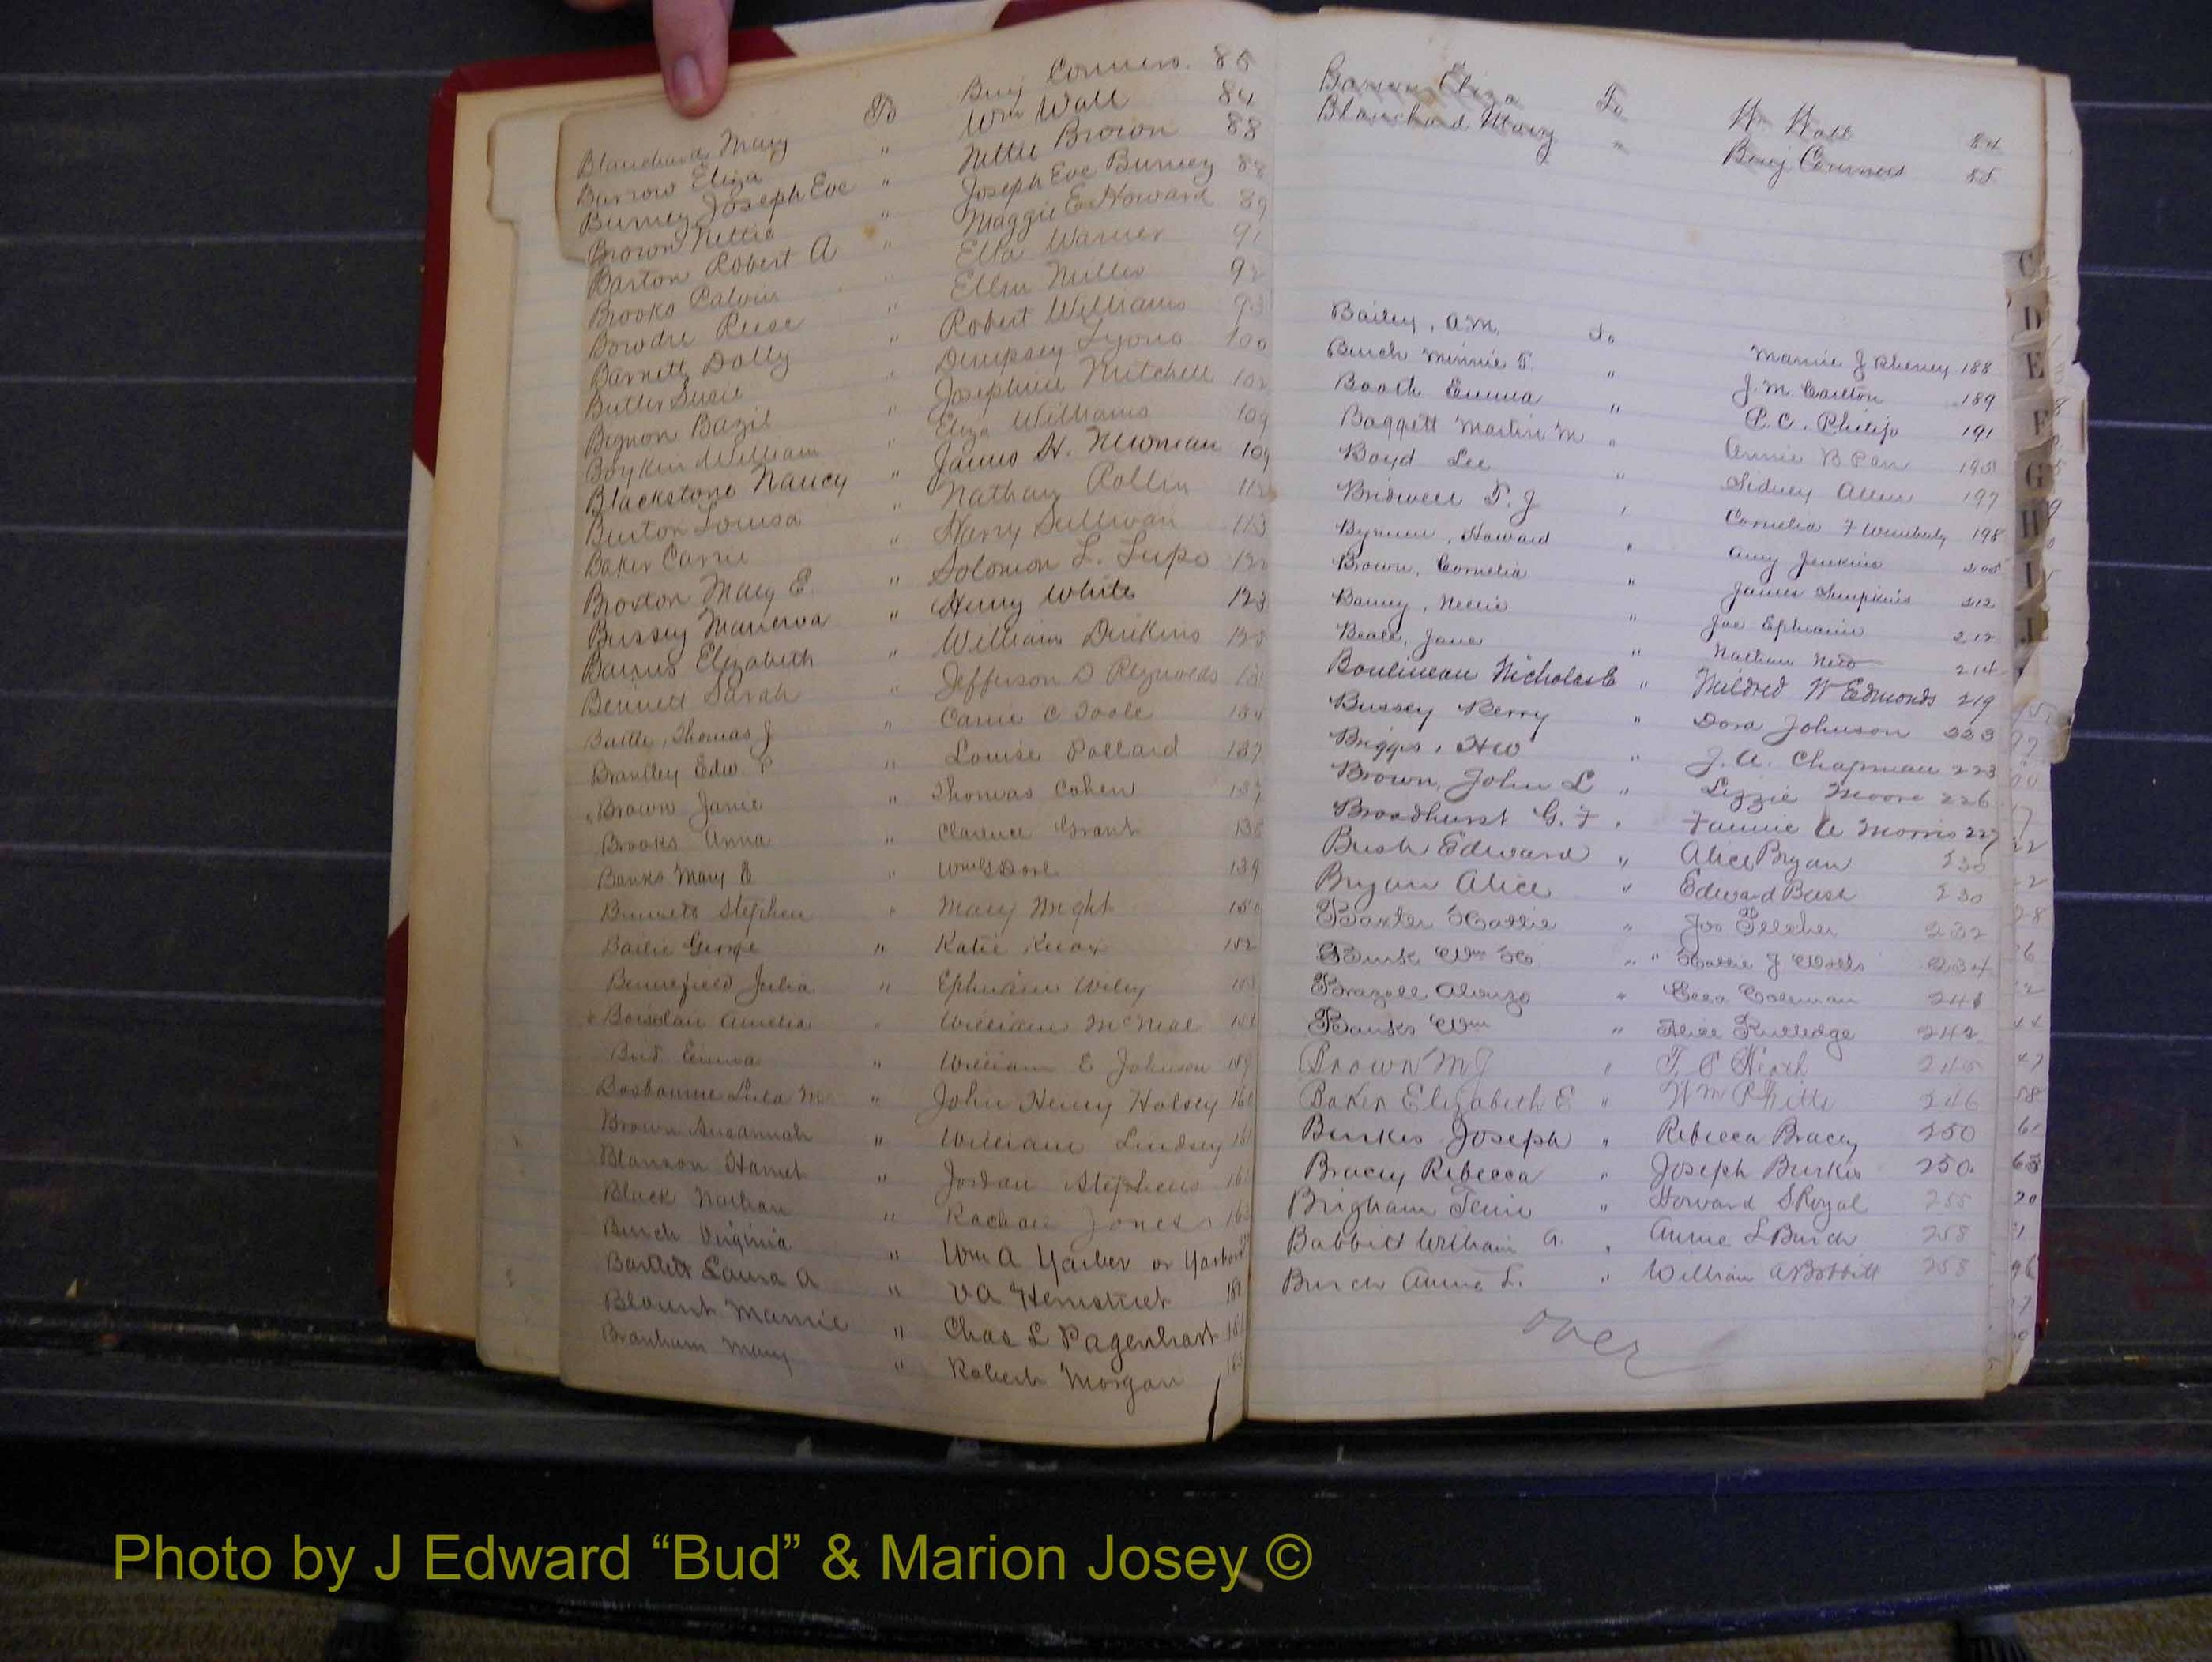 Blanchard Mary To Benj Conners. 85
Barrow Eliza " Wm Wall 84
Burney Joseph Eve " Nettie Brown 88
Brown Nettie " Joseph Eve Burney 88
Barton Robert A " Maggie E Howard 89
Brooks Calvin " Ella Warner 91
Bowdre Reese " Ellen Miller 92
Barnett Dolly " Robert Williams 93
Butler Susie " Dempsey Lyons 100
Bignon Bazil " Josephine Mitchell 102
Boykin William " Eliza Williams 109
Blackstone Nancy " James H. Newman 109
Burton Louisa " Nathan Rollin 112
Baker Carrie " Harry Sullivan 113
Broxton Mary E. " Solomon L. Lupo 122
Bussey Manerva " Henry White 123
Barnes Elizabeth " William Dinkins 125
Bennett Sarah " Jefferson D Reynolds
Battle, Thomas J " Carrie C Toole 134
Brantley Edw. P " Louise Pollard 137
Brown Janie " Thomas Cohen 137
Brooks Anna " Clarence Grant 138
Banks Mary E " Wm Dorl 139
Bennett Stephen " Mary Wright 150
Bailie George " Katie Knox 152
Bennefield Julia " Ephriam Wiley 153
Boisclair Amelia " William McNeal
Bird Emma " William E Johnson 159
Lula M " John Henry Halsey 160
Brown Susannah " William Lindsey 161
Blanson Harriet " Jordan Stephens
Black Nathan " Rachael Jones
Burch Virginia " Wm A Yarber or
Bartlett Laura A " V A Hemstreet 181
Blount Mamie " Chas L Pagenhart 181
Branham Mary " Robert Morgan
Barrow Eliza To Wm Wall 84
Blanchard Mary " Benj Conners 85
Bailey, A.M. To Mamie J Rheney 188
Burch Minnie T. " J. M. Carlton 189
Booth Emma " P. C. Philip 191
Baggett Martin M " Annie B Parr 195
Boyd Lee " Sidney Allen 197
Bridwell T. J " Cornelia F Wimberly 198
Bynum, Howard " Amy Jenkins 205
Brown, Cornelia " James Simpkins 212
Barney, Nellie " Joe Ephraim 212
Beale, Jane " Nathan 214
Boulineau Nicholas E " Mildred W Edmonds 219
Bussey Berry " Dora Johnson 223
Briggs, H W " J. A. Chapman 223
Brown, John L " Lizzie Moore 226
Broadhurst G. F. " Fannie A Morris 227
Bush Edward " Alice Bryan 230
Bryan Alice " Edward Bush 230
Baxter Hattie " Jos Pelcher 232
Burk Wm H " Hattie J Wells 234
Brazell Alonzo " Ella Coleman 241
Banks Wm " Alice Rutledge 242
Brown M J " T. C Heath 245
Baker Elizabeth E " Wm R Hitt 246
Burkes Joseph " Rebecca Bracey 250
Bracey Rebecca " Joseph Burkes 250.
Brigham Tenie " Howard S Royal 255
Babbitt William A. " Annie L Burch 258
Burch Annie L. " William A Bobbitt 258
over
C
D
E
F
G
H
I
J
Photo by J Edward “Bud” & Marion Josey ©